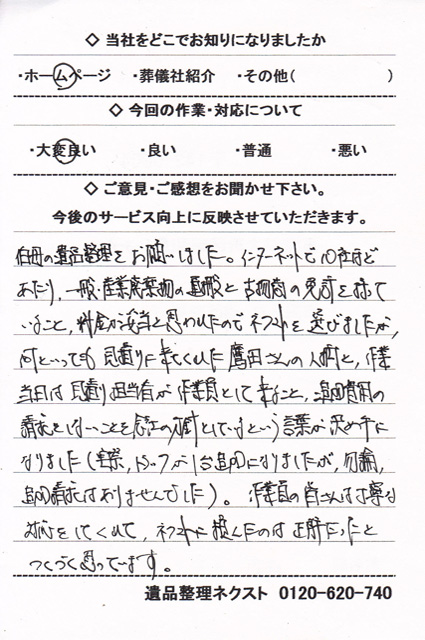 ◇ 当社をどこでお知りになりましたか
・ホームページ ・葬儀社紹介 ・その他( )
◇ 今回の作業・対応について
・大変良い ・良い ・普通 ・悪い
◇ ご意見・ご感想をお聞かせ下さい。
今後のサービス向上に反映させていただきます。
伯母の遺品整理をお願いしました。インターネットで10社ほど
あたり、一般・産業廃棄物の運搬と古物商の免許を持って
いること、料金が妥当と思われたのでネクストを選びましたが、
何といっても見積りに来てくれた鷹田さんの人柄と、作業
当日は見積り担当者が作業員として来ること、追加費用の
請求をしないことを会社の方針としているという言葉が決め手に
なりました(実際、トラックが1台追加になりましたが、勿論、
追加請求はありませんでした)。作業員の皆さんは丁寧な
対応をしてくれて、ネクストに頼んだのは正解だったと
つくづく思っています。
遺品整理ネクスト 0120-620-740